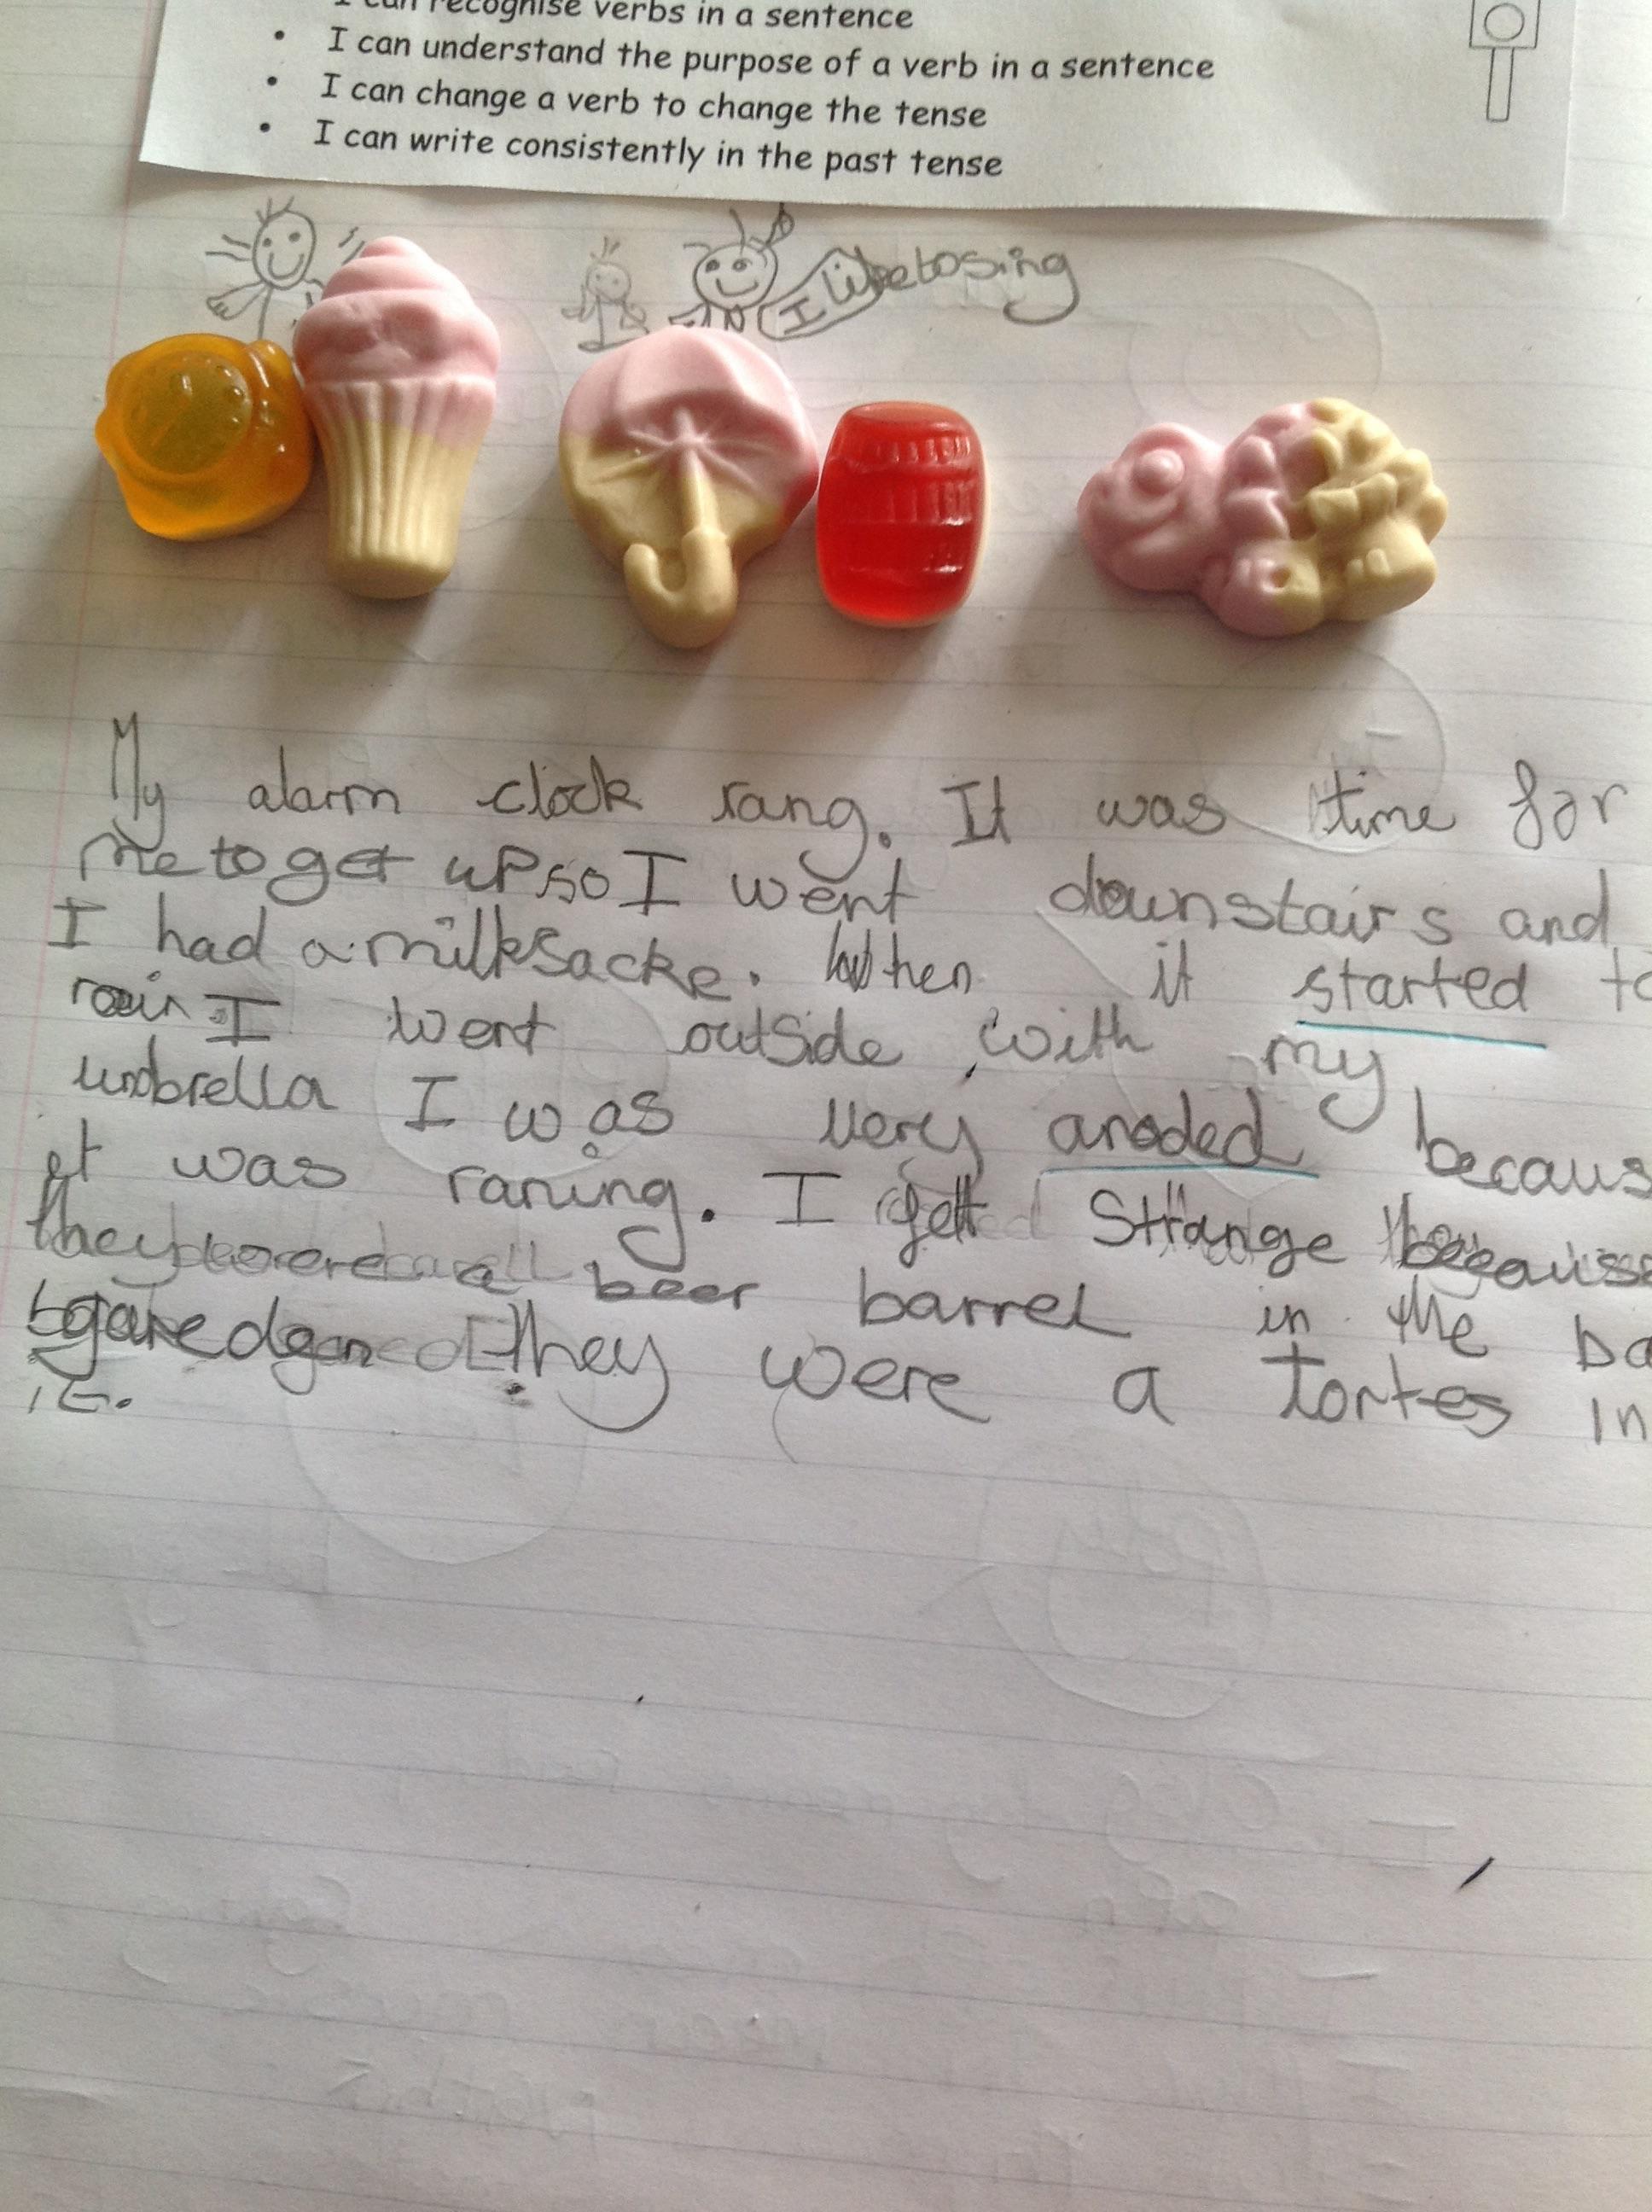 I can recognise verbs in a sentence
• I can understand the purpose of a verb in a sentence
• I can change a verb to change the tense
• I can write consistently in the past tense
I like to sing
My alarm clock rang. It was time for
me to get up so I went downstairs and
I had a milksacke. When it started to
rain I went outside with my
umbrella I was very anoded becaus
it was raning. I felt Strange because
they were a beer barrel in the ba
garedgen they were a tortes in
it.